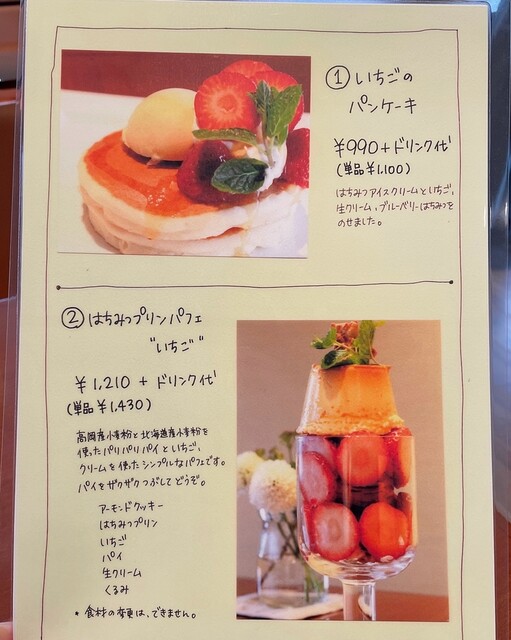 ① いちごの
パンケーキ
¥990+ドリンク代
(単品¥1,100)
はちみつアイスクリームといちご、
生クリーム、ブルーベリーはちみつを
のせました。
② はちみつプリンパフェ
"いちご"
¥1,210 + ドリンク代
(単品¥1,430)
高岡産小麦粉と北海道産小麦粉を
使ったパリパリパイといちご、
クリームを使ったシンプルなパフェです。
パイをザクザクつぶしてどうぞ。
アーモンドクッキー
はちみつプリン
いちご
パイ
生クリーム
くるみ
• 食材の変更は、できません。